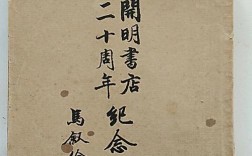 開明書店
二十周年紀念
馬敘倫